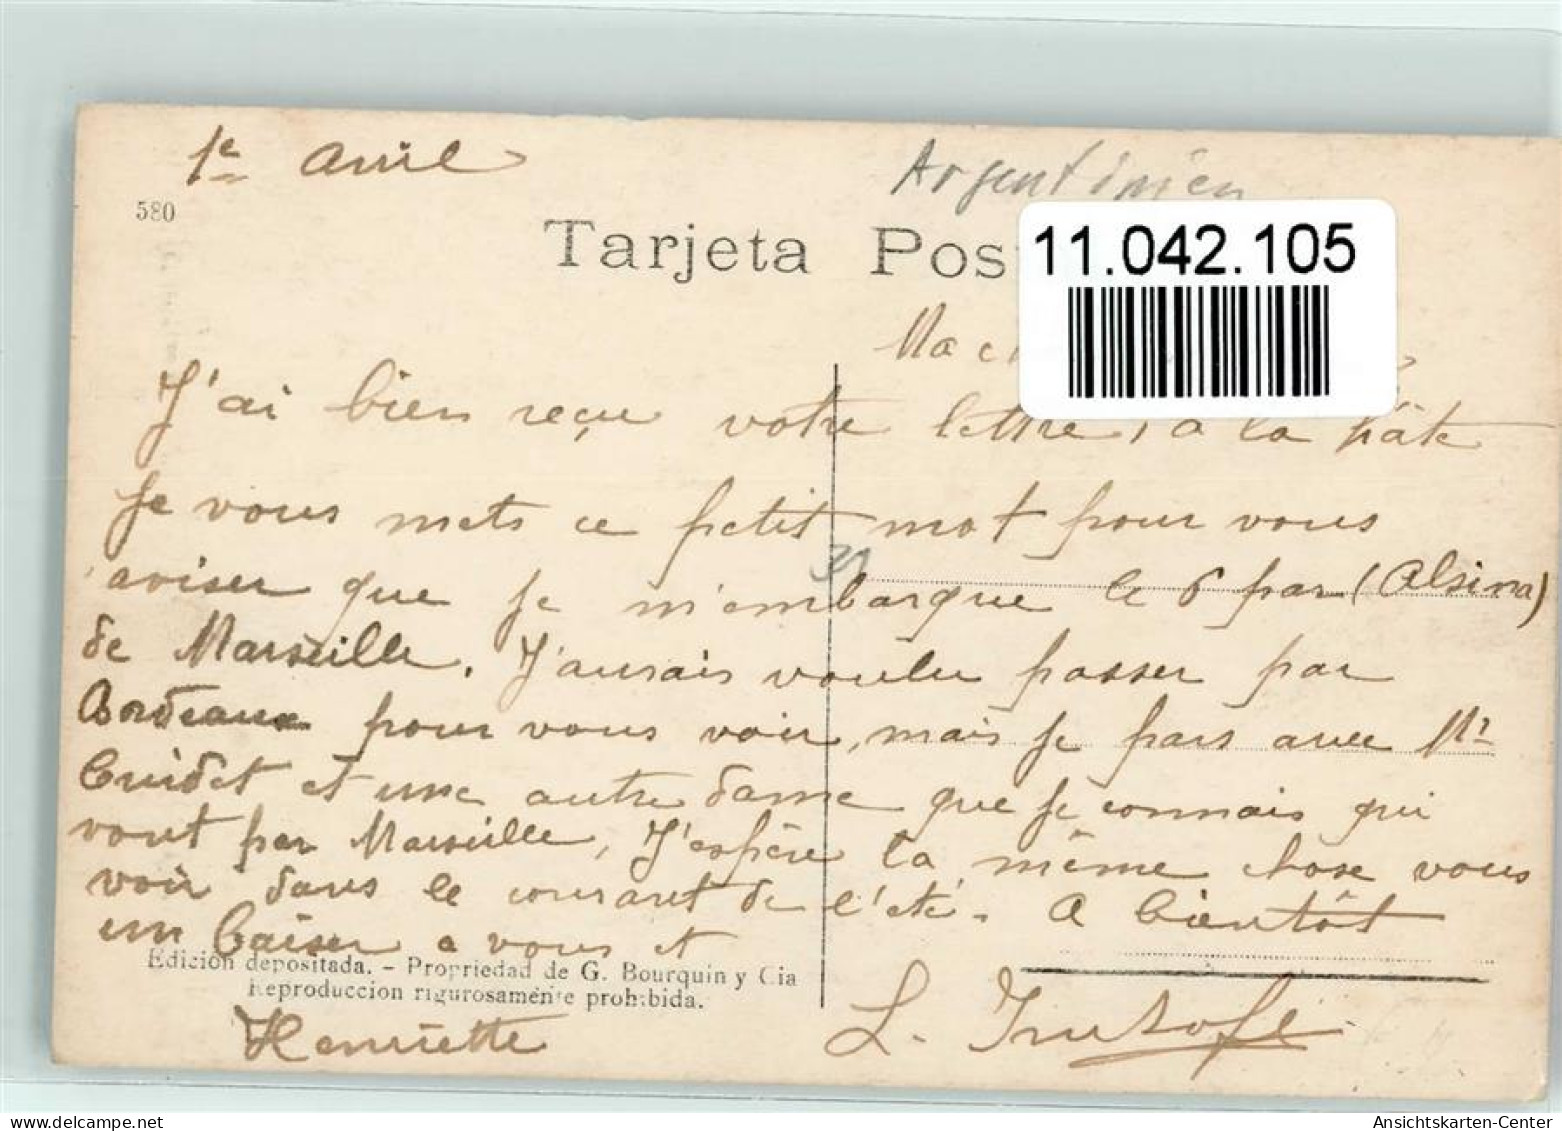 1e avril
Argentinien
580
Tarjeta Pos
11.042.105
Ma
J'ai bien reçu votre lettre, a la hâte
Je vous mets ce petit mot pour vous
aviser que je m'embarque le 6 par (Alsina)
39
de Marseille. J'aurais voulu passer par
Bordeaux pour vous voir, mais je pars avec Mr
Guidet et une autre dame que je connais qui
vont par Marseille, J'espère la même chose vous
voir dans le courant de l'été. A bientôt
un baiser a vous et
Edición depositada. - Propriedad de G. Bourquin y Cia
Reproduccion rigurosamente prohibida.
Henriette
L.
Ansichtskarten-Center